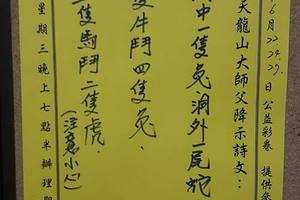 6月22.24.27.日公益彩卷 提供参
天龍山大師父降示詩文：
洞中一隻兔洞外一尾蛇
隻牛鬥四隻兔．
二隻馬鬥二隻虎．
(注意小人)
星期三晚上七點半辦理